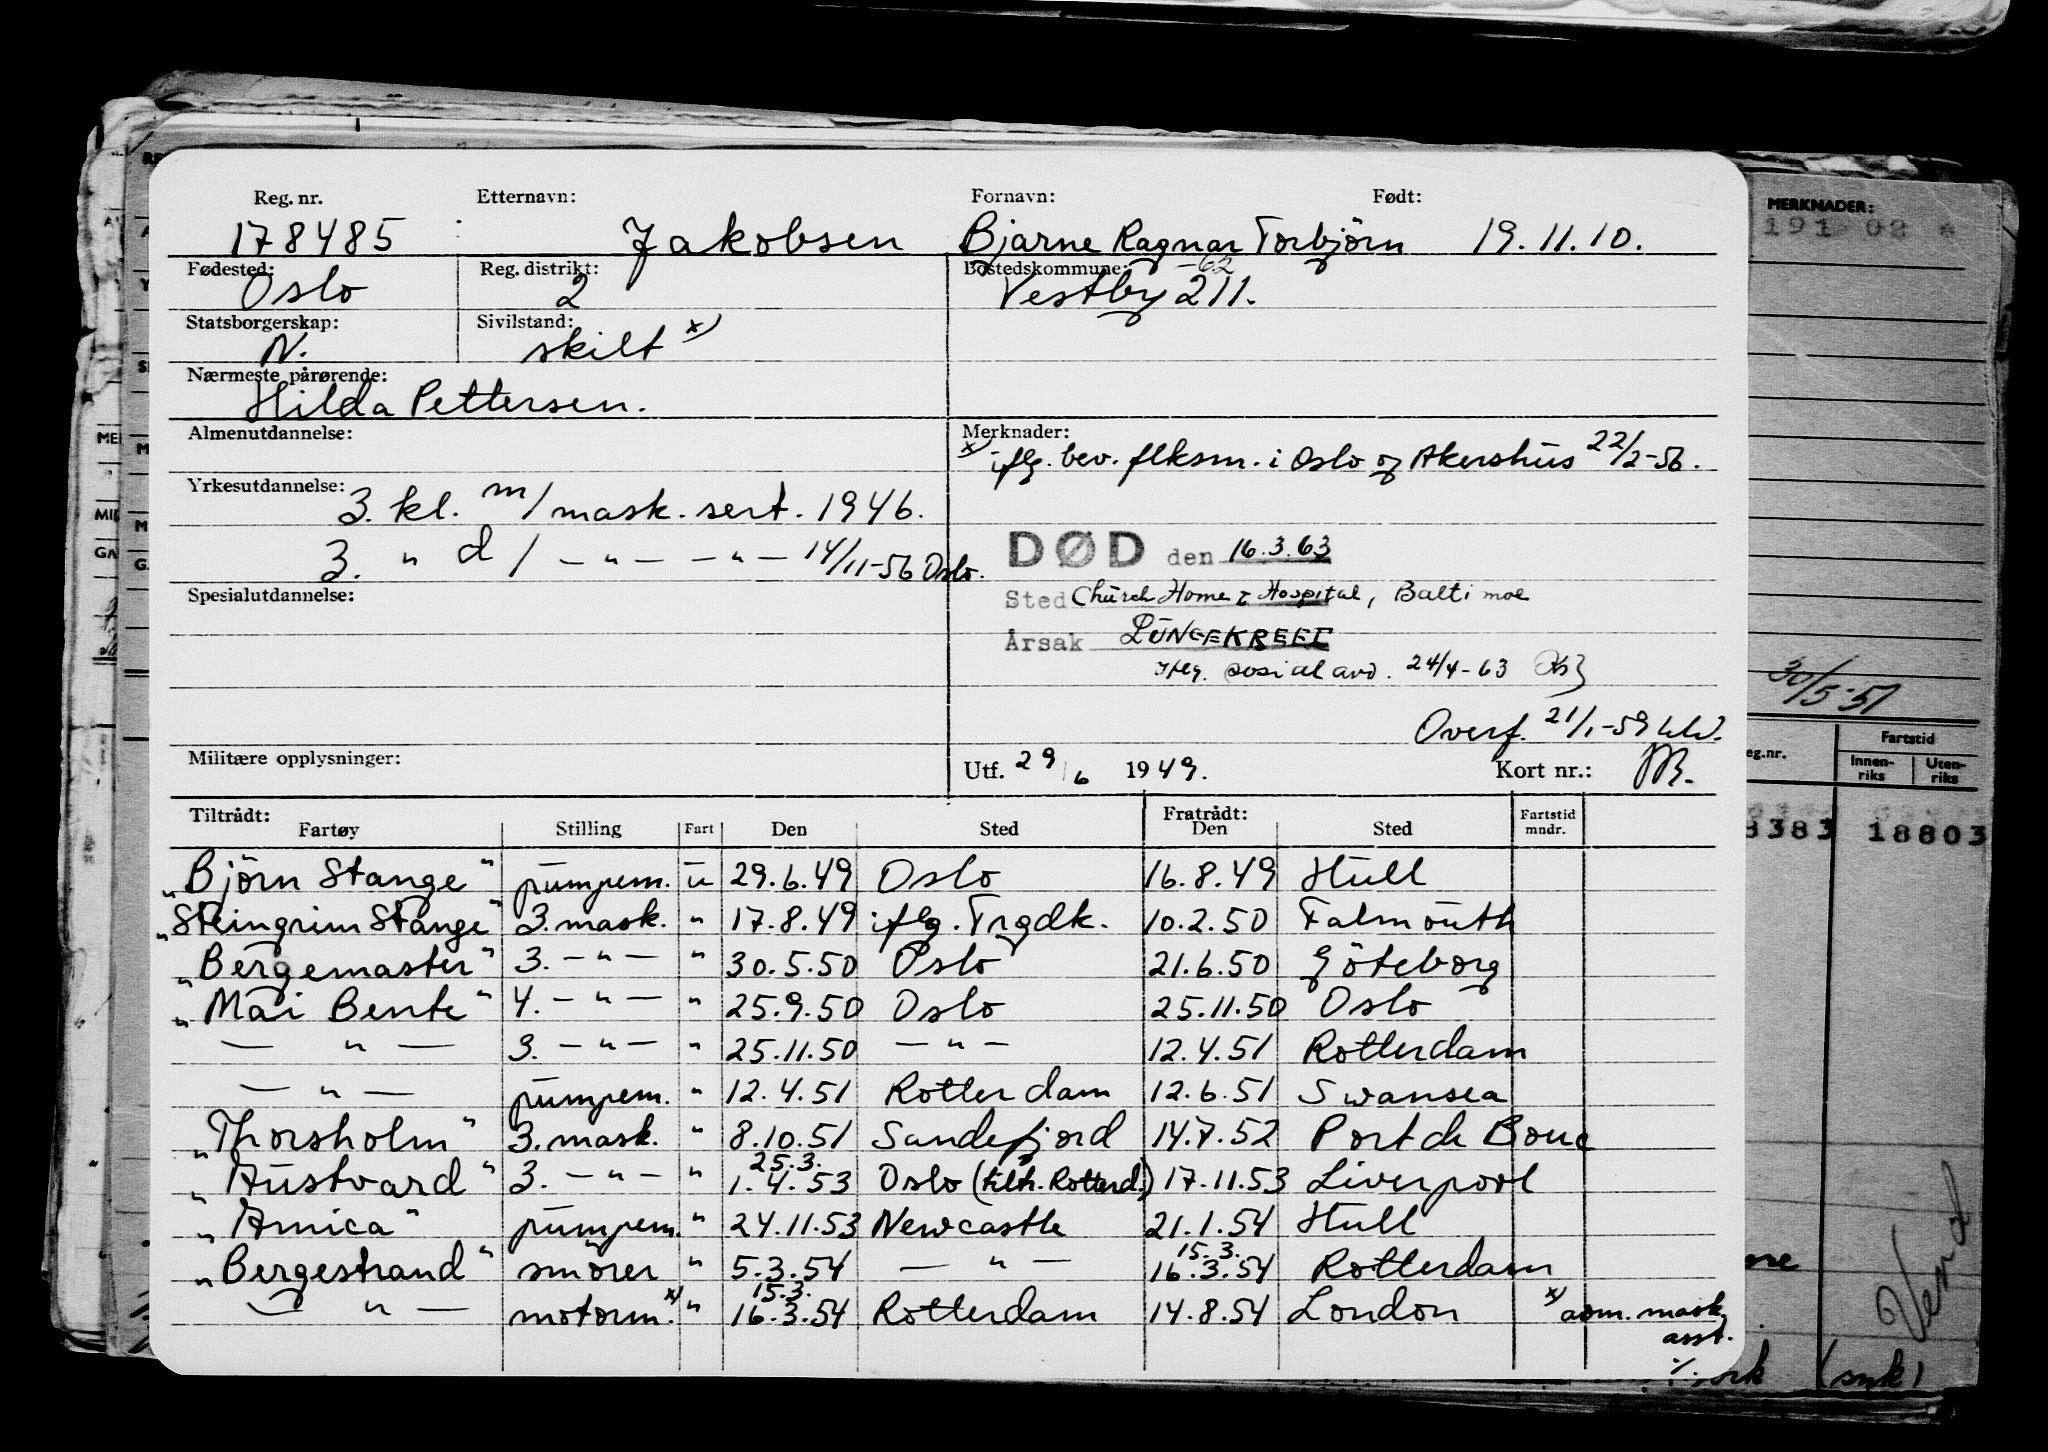 Reg. nr. Etternavn: Fornavn: Født:
178485 Jakobsen Bjarne Ragnar Torbjörn 19.11.10.
Fødested: Reg. distrikt: Bostedskommune: -62
Oslo 2 Vestby 211.
Statsborgerskap: Sivilstand:
N. skilt x)
Nærmeste pårørende:
Hilda Pettersen.
Almenutdannelse: Merknader:
x) iflg. bev. flksm. i Oslo og Akershus 22/2-56.
Yrkesutdannelse:
3. kl. m/ mask. sert. 1946.
3. " d / - " - - " - 14/11-56 Oslo.
DØD den 16.3.63
Spesialutdannelse:
Sted Church Home & Hospital, Baltimoe
Årsak LUNGEKREFT
Iflg. sosial avd. 24/4-63
Overf. 21/1-59
Militære opplysninger: Utf. 29/6 1949. Kort nr.:
Tiltrådt: Fratrådt:
Fartøy Stilling Fart Den Sted Den Sted Fartstid mndr.
"Björn Stange" pumpem. u 29.6.49 Oslo 16.8.49 Hull
"Steingrim Stange" 3. mask. " 17.8.49 iflg. Trgdk. 10.2.50 Falmouth
"Bergemaster" 3. - " - " 30.5.50 Oslo 21.6.50 Göteborg
"Mai Bente" 4. - " - " 25.9.50 Oslo 25.11.50 Oslo
- " - 3. - " - " 25.11.50 - " - 12.4.51 Rotterdam
- " - pumpem. " 12.4.51 Rotterdam 12.6.51 Swansea
"Thorsholm" 3. mask. " 8.10.51 Sandefjord 14.7.52 Port de Bouc
25.3.
"Austvard" 3. - " - " 1.4.53 Oslo (tiltr. Rotterd.) 17.11.53 Liverpool
"Arnica" pumpem. " 24.11.53 Newcastle 21.1.54 Hull
15.3.
"Bergestrand" smörer " 5.3.54 - " - 16.3.54 Rotterdam
15.3.
- " - motorm. x) " 16.3.54 Rotterdam 14.8.54 London x) aom. mask.
asst.
MERKNADER:
191 02 *
30/5-51
eg.nr. Fartstid
Innen-riks Uten-riks
8383 18803
Vend
(snk)